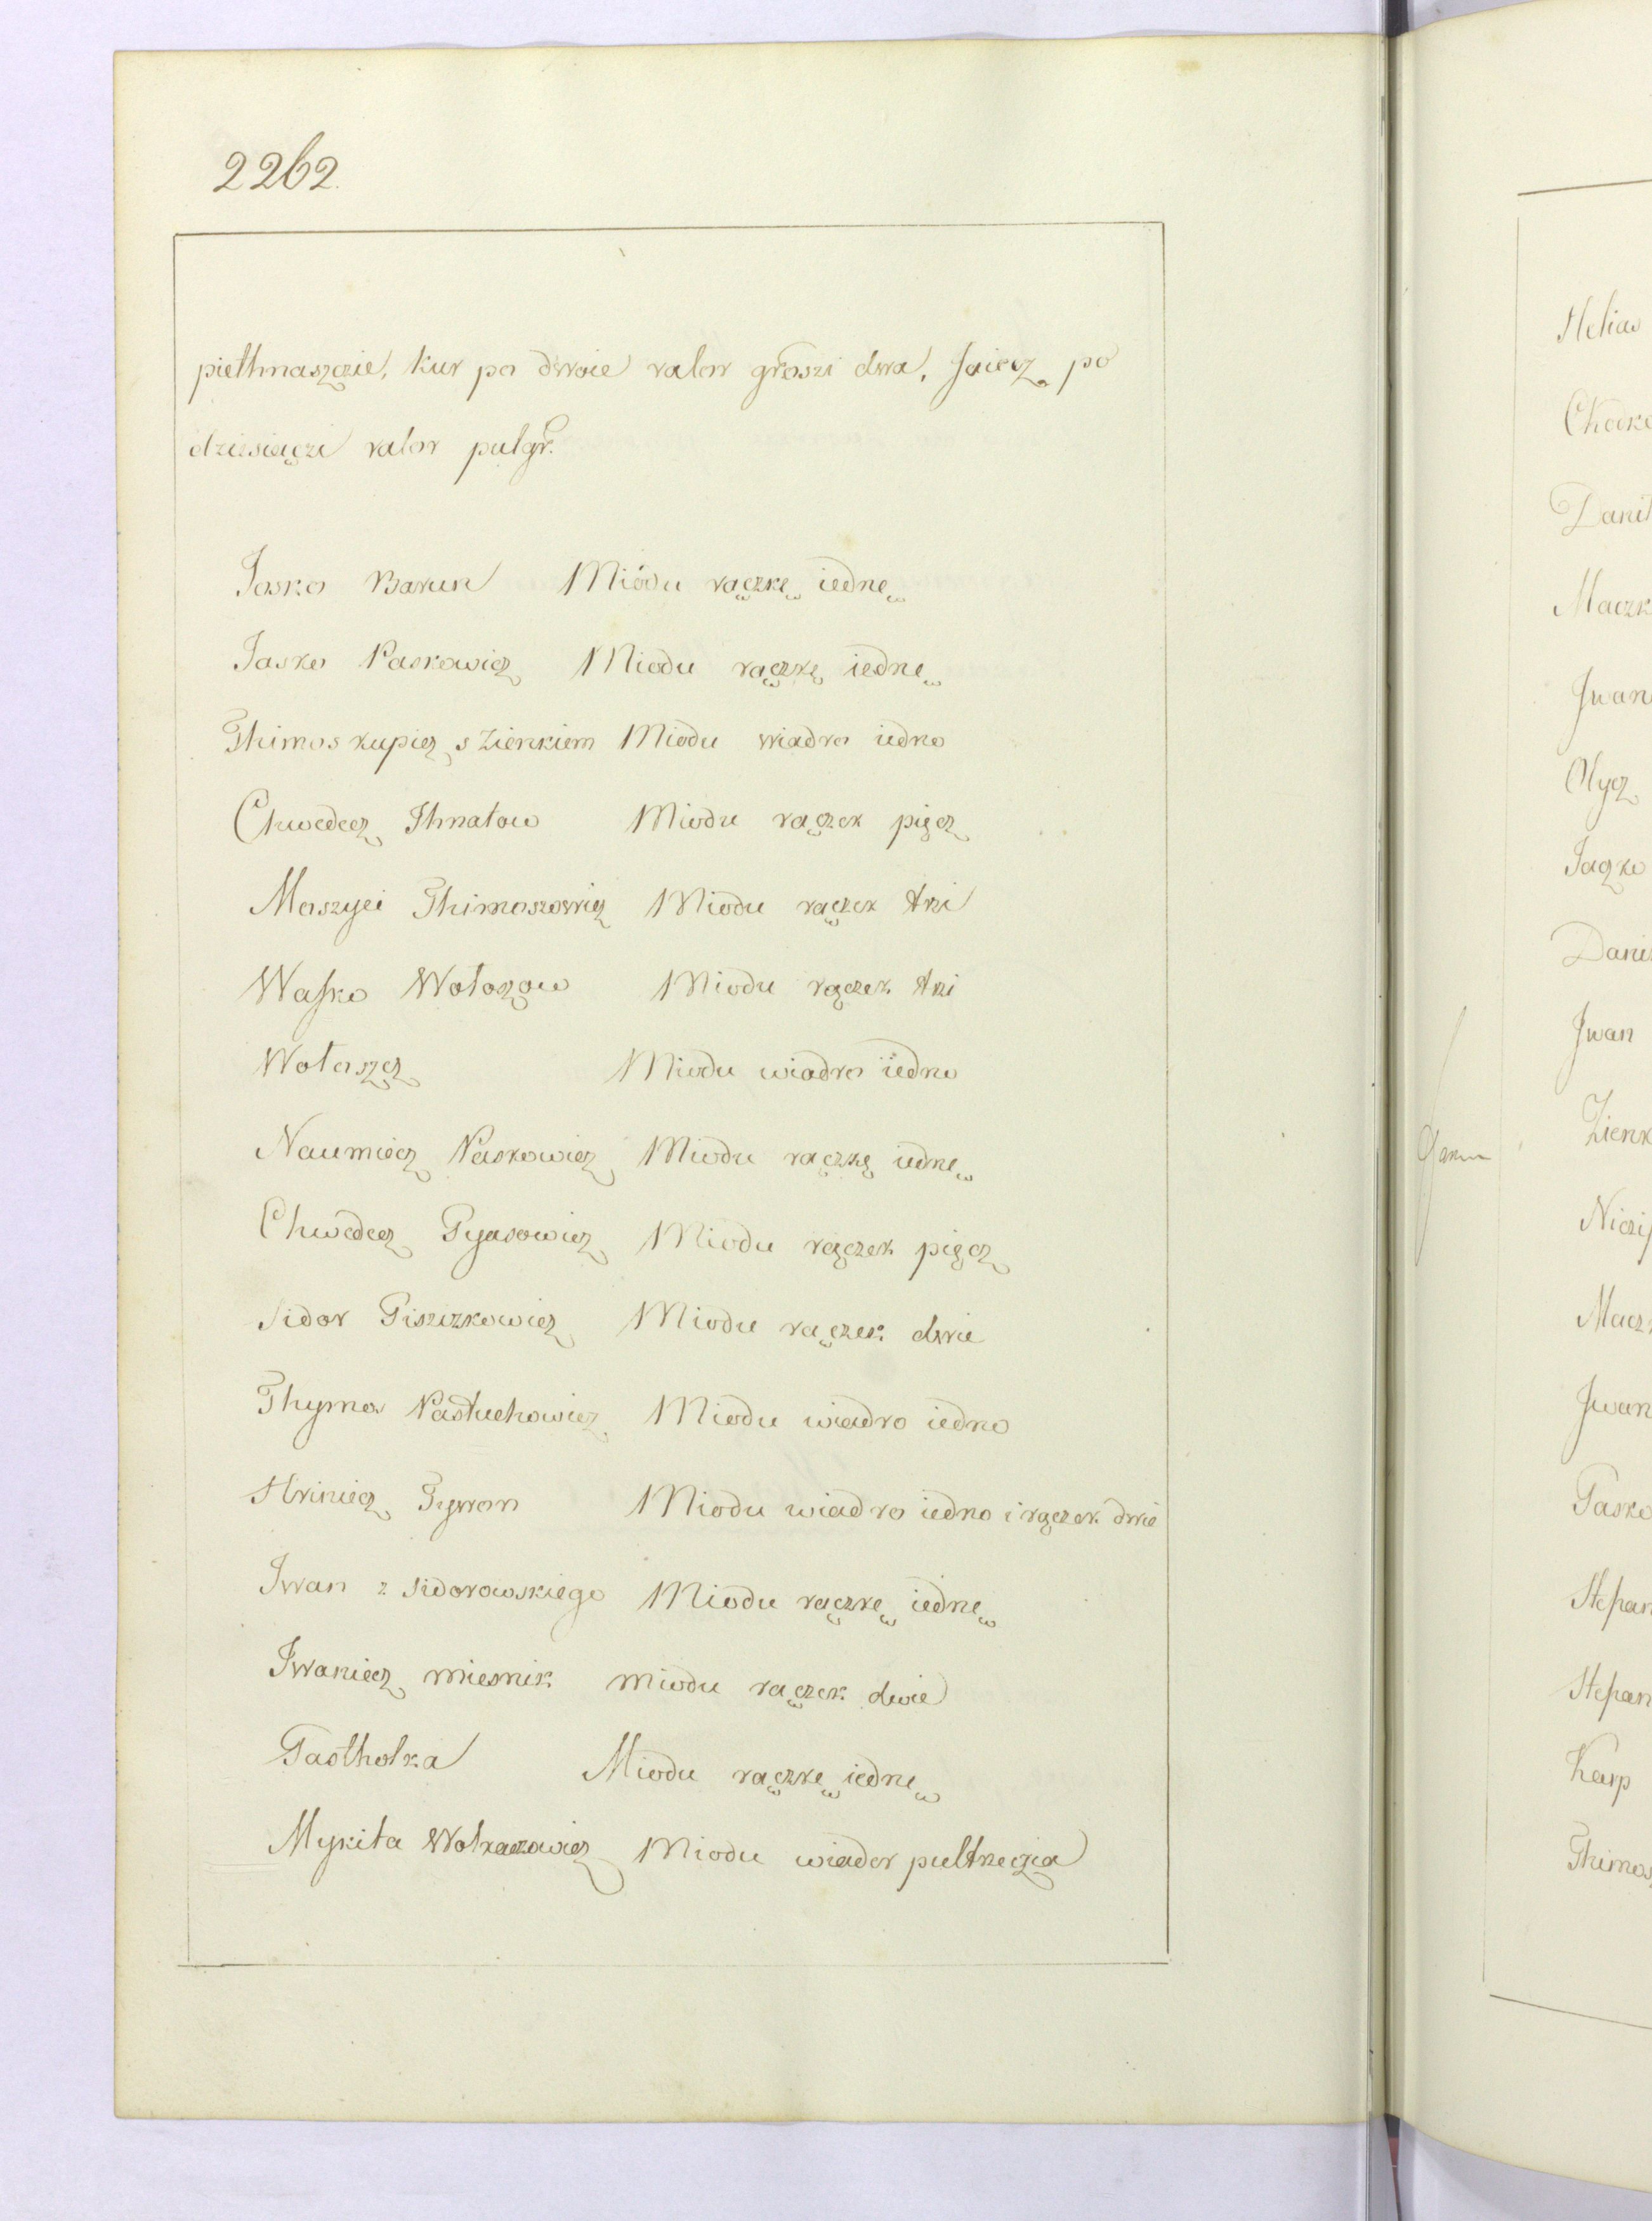 2262.
piethnasczie, kur po dwoie valor groszi dwa, Jaiecz po
dziesiączi valor pulgr.
Jasko Barun Miodu rączkę iednę
Jasko Paskowicz Miodu rączkę iednę
Thimos kupiecz s Zienkiem Miodu wiadro iedno
Chwedecz Ihnatow Miodu rączek pięcz
Moszyei Thimoszowicz Miodu rączek trzi
Wasko Wołoszow Miodu rączek trzi
Wołoszcz Miodu wiadro iedno
Naumiecz Paskowicz Miodu rączkę iednę
Chwedecz Pyasowicz Miodu rączek pięcz
Sidor Piszczkowicz Miodu rączek dwie
Thymos Pastuchowicz Miodu wiadro iedno
Hriniecz Tywon Miodu wiadro iedno i rączek dwie
Iwan z Sidorowskiego Miodu rączkę iednę
Iwaniecz miesnik miodu rączek dwie
Pastholka Miodu rączkę iednę
Mykita Wolkaczowicz Miodu wiader pultrzeczia
Helias
Chodko
Danil
Maczk
Iwan
Olycz
Jaczko
Danil
Iwan
Zienk
Niczi
Macz
Iwan
Pasko
Stepan
Stepan
Karp
Thimos